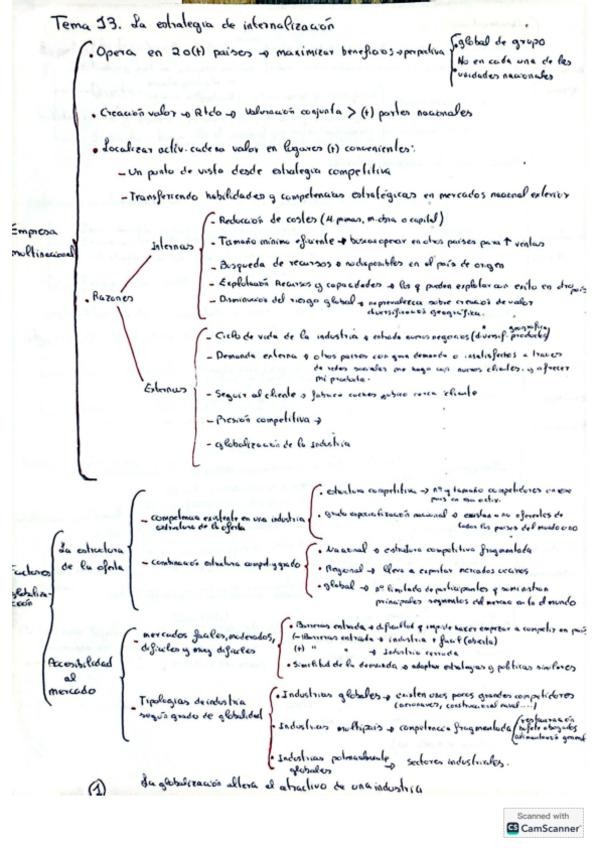 Tema 13. La estrategia de internalización
Empresa multinacional
• Opera en 2 o (+) países → maximizar beneficios → perspectiva
• global de grupo
• No en cada una de las
• unidades nacionales
• Creación valor → Rtdo → Valoración conjunta > (+) partes nacionales
• Localizar activ. cadena valor en lugares (+) convenientes:
- Un punto de vista desde estrategia competitiva
- Transfiriendo habilidades y competencias estratégicas en mercados nacional exterior
• Razones
Internas
- Reducción de costes (M. primas, m. obra o capital)
- Tamaño mínimo eficiente → busca operar en otros países para ↑ ventas
- Búsqueda de recursos → no disponibles en el país de origen
- Explotación Recursos y capacidades → los q pueden explotar con éxito en otro país
- Disminución del riesgo global → sobre creación de valor
diversificación geográfica.
Externas
- Ciclo de vida de la industria → entrada nuevos negocios (diversif. productos)
geográfica
- Demanda externa → otros países con gran demanda o insatisfechos a través
de redes sociales me hago con nuevos clientes. y ofrecer
mi producto.
- Seguir al cliente → fabrico coches cerca cliente
- Presión competitiva →
- globalización de la industria
Factores globalización
La estructura de la oferta
- competencia existente en una industria
estructura de la oferta
• estructura competitiva → nº y tamaño competidores en ese
país en esa activ.
• grado especialización nacional → existan o no oferentes de
todos los países del mundo o no
- combinación estructura compet. y grado
• Nacional → estructura competitiva fragmentada
• Regional → lleva a exportar mercados cercanos
• global → nº limitado de participantes y suministran
principales segmentos del mercado en todo el mundo
Accesibilidad al mercado
- mercados fáciles, moderados,
difíciles y muy difíciles
• Barreras entrada → dificultad q impide hacer empezar a competir en país
(-) Barreras entrada → industria + fácil (abierta)
(+) " " → Industria cerrada
• Similitud de la demanda → adoptar estrategias y políticas similares
- Tipologías de industria
según grado de globalidad
• Industrias globales → existen unos pocos grandes competidores
(aeronaves, construcción naval....)
• Industrias multipaís → competencia fragmentada (restauración
bufete abogados
alimentación general
• Industrias potencialmente
globales → sectores industriales.
① La globalización altera el atractivo de una industria
Scanned with
CS CamScanner